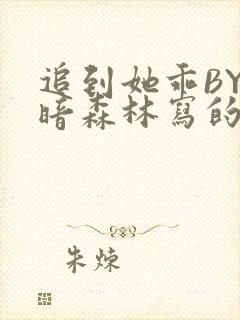 追到她乖BY
暗森林寫的
朱煉